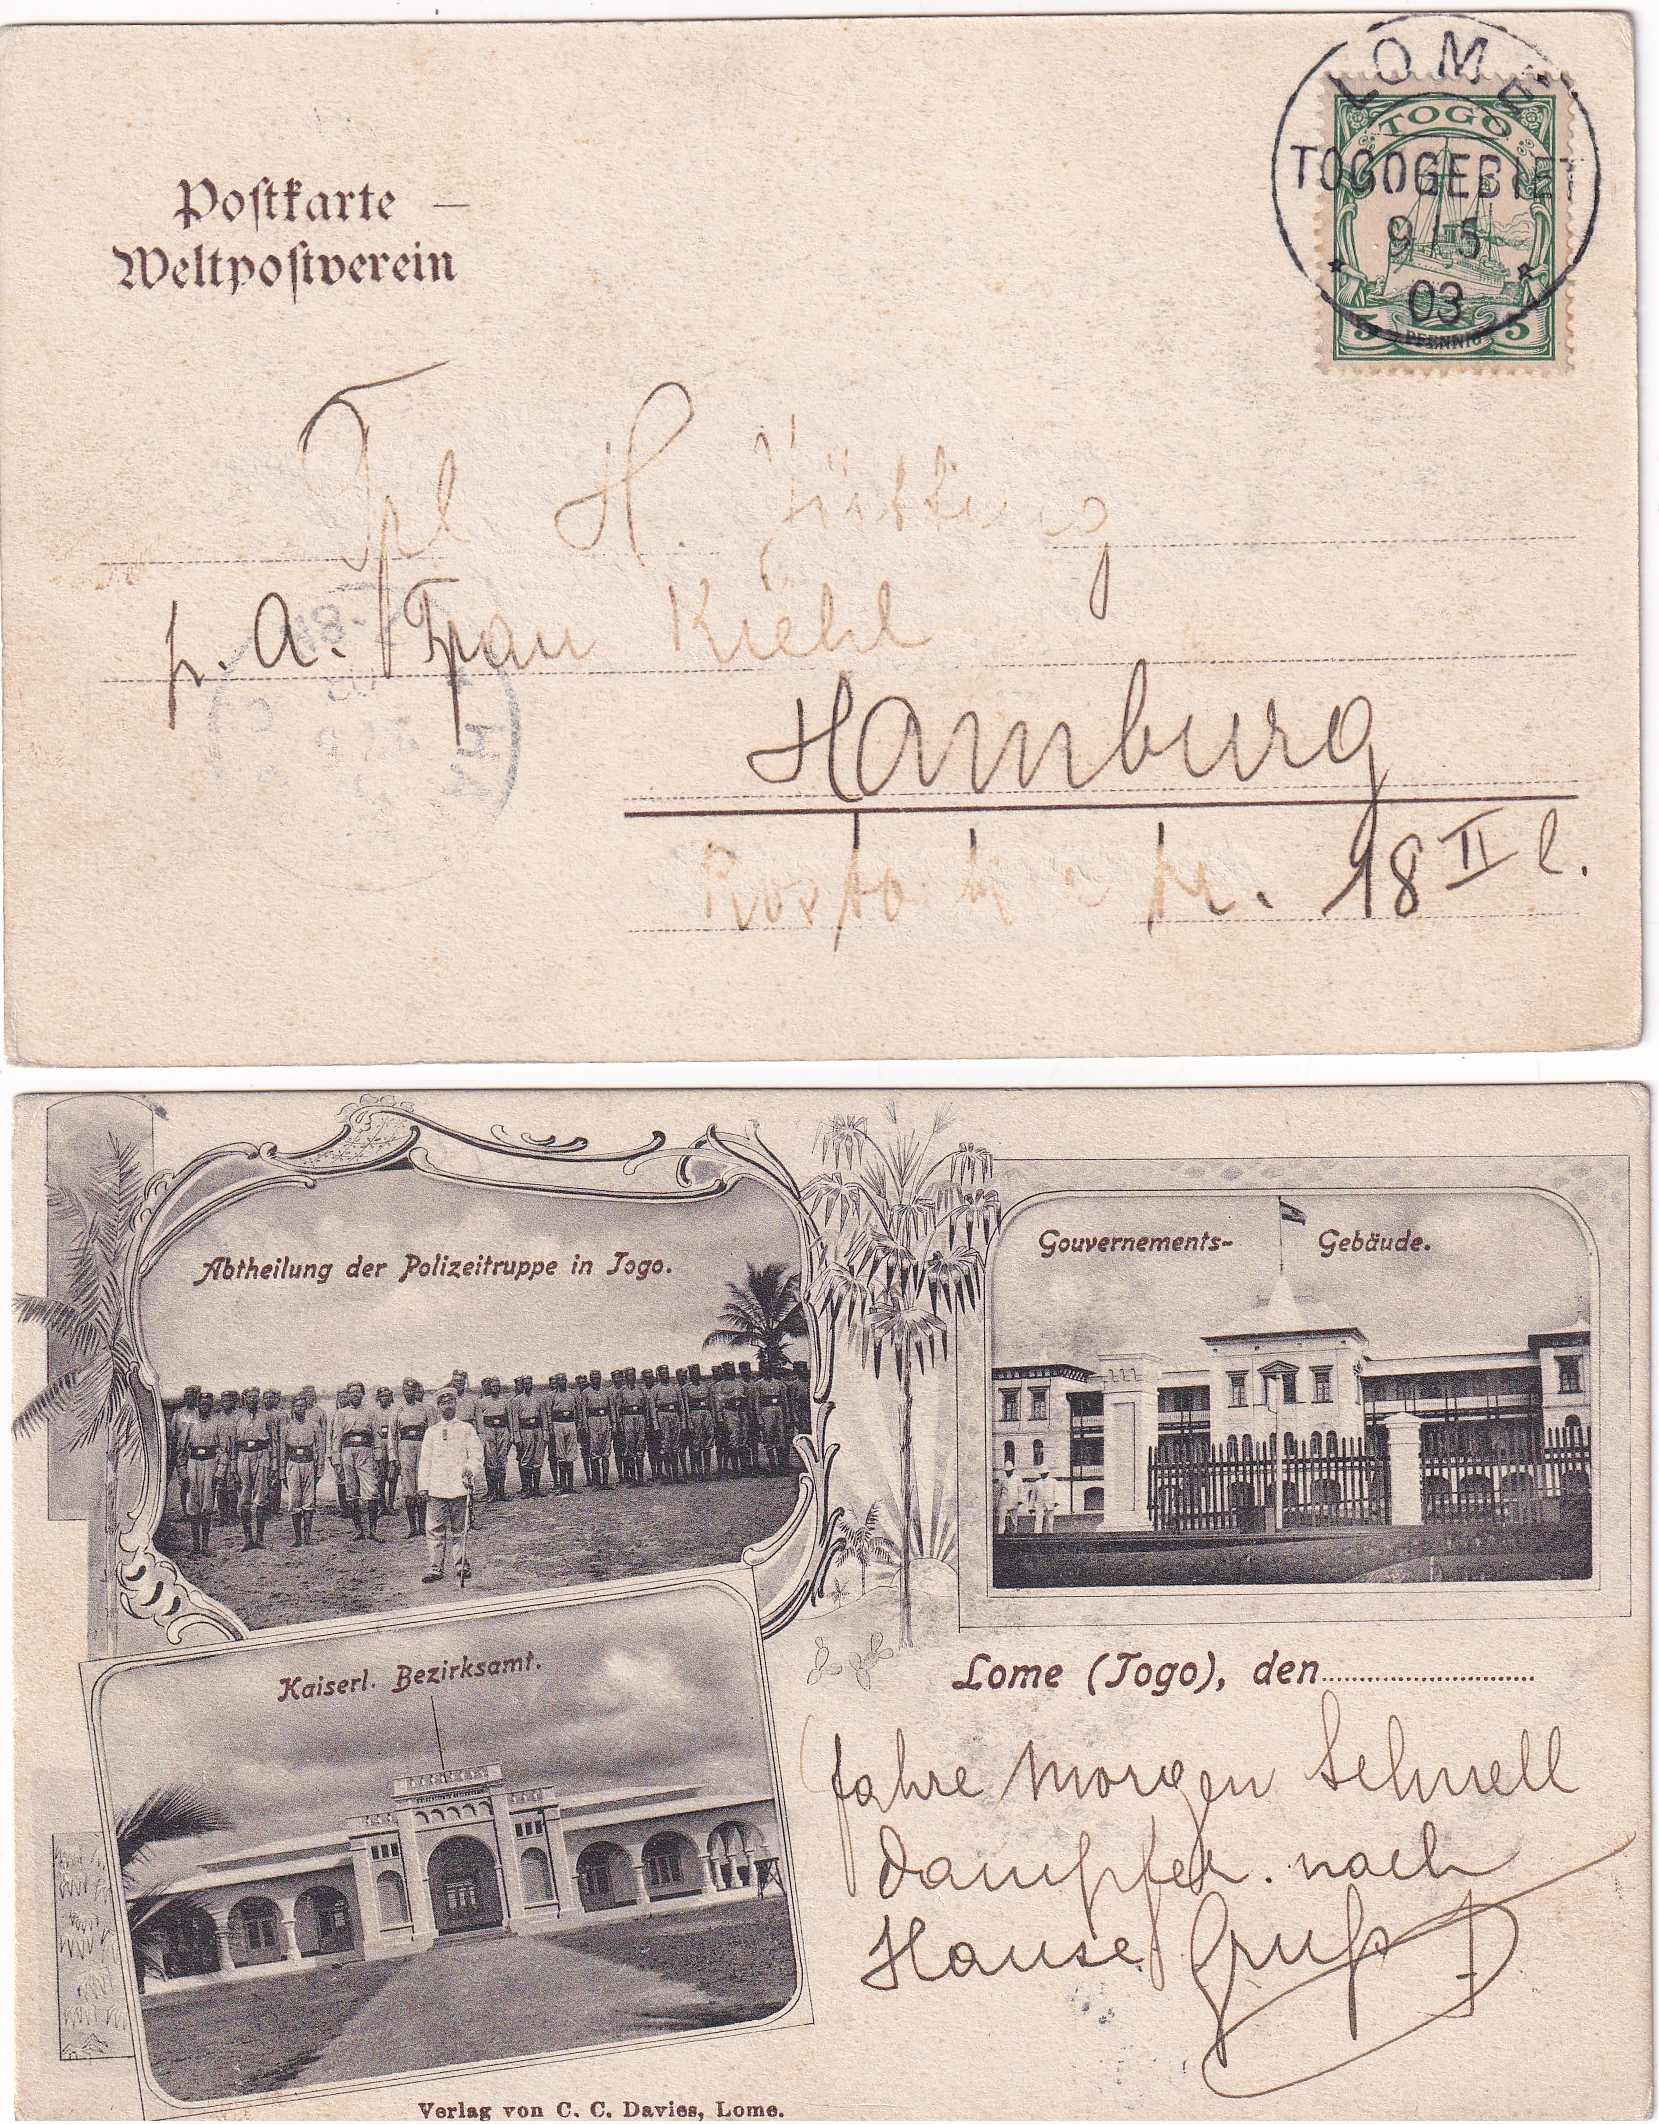 Postkarte —
Weltpostverein
LOME
TOGOGEBIET
9/5
03
TOGO
5 PFENNIG 5
Frl H.
p. A. Frau Kiehl
Hamburg
Rostockerstr. 18 II l.
Abtheilung der Polizeitruppe in Togo.
Gouvernements-Gebäude.
Kaiserl. Bezirksamt.
Lome (Togo), den
fahre morgen Schnell
dampfer. nach
Hause Gruß
Verlag von C. C. Davies, Lome.